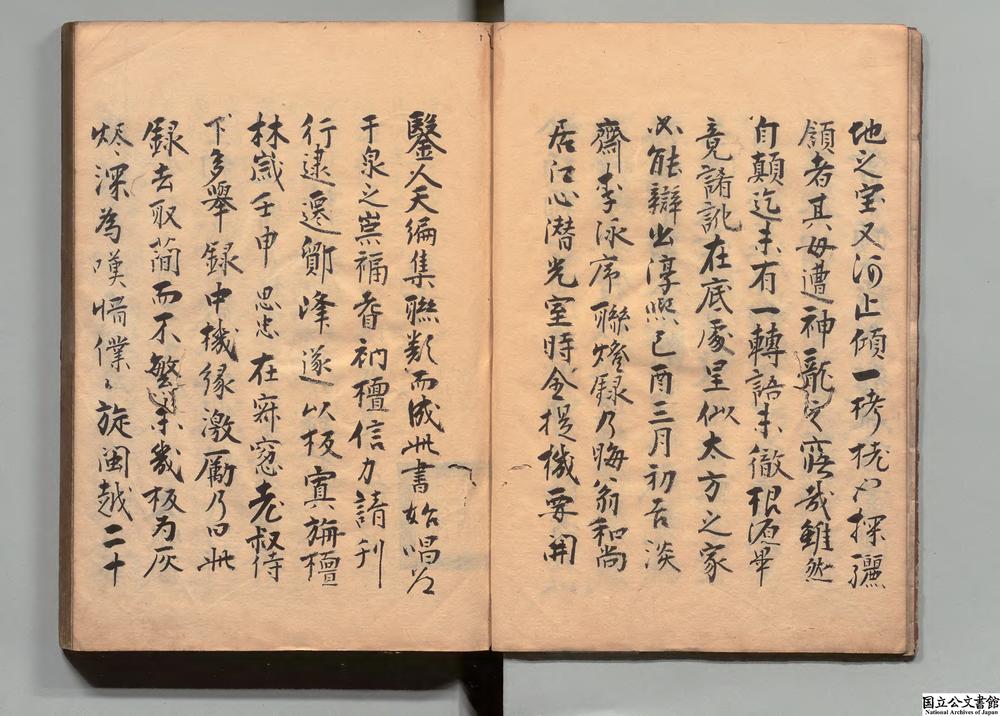 地之宝又河止傾一栲栳也探驪
頷者其毋遭神龍之寤哉雖然
自顛迄末有一轉語未徹根源畢
竟誵訛在底處呈似太方之家
必能辯出淳熙己酉三月初吉淡
齋李泳序聯燈録乃晦翁和尚
居江心潜光室時全提機要開
鑿人天編集聯類而成此書始唱道
于泉之崇福香衲檀信力請刊
行逮遷鄮峰遂以板寘旃檀
林歳壬申思忠在寂窓老叔侍
下多舉録中機縁激厲乃曰此
録去取蕳而不繁未幾板為灰
烬深為嘆惜僕〻旋閩越二十
国立公文書館
National Archives of Japan